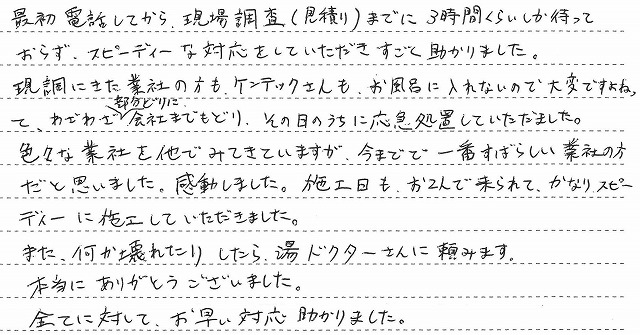 最初電話してから、現場調査(見積り)までに3時間くらいしか待って
おらず、スピーディーな対応をしていただきすごく助かりました。
現調にきた業社の方も、ケンテックさんも、お風呂に入れないので大変ですよね、
部分どりに
て、わざわざ会社までもどり、その日のうちに応急処置していただました。
色々な業社を他でみてきていますが、今までで一番すばらしい業社の方
だと思いました。感動しました。施工日も、お2人で来られて、かなりスピー
ディーに施工していただきました。
また、何か壊れたりしたら、湯ドクターさんに頼みます。
本当にありがとうございました。
全てに対して、お早い対応助かりました。